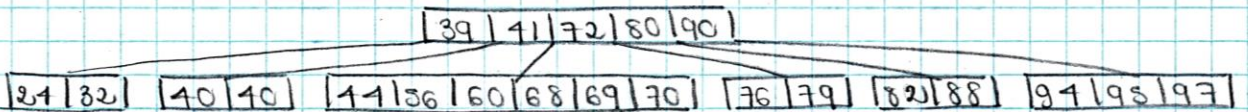 39 41 72 80 90
24 32 40 40 44 56 60 68 69 70 76 79 82 88 94 95 97